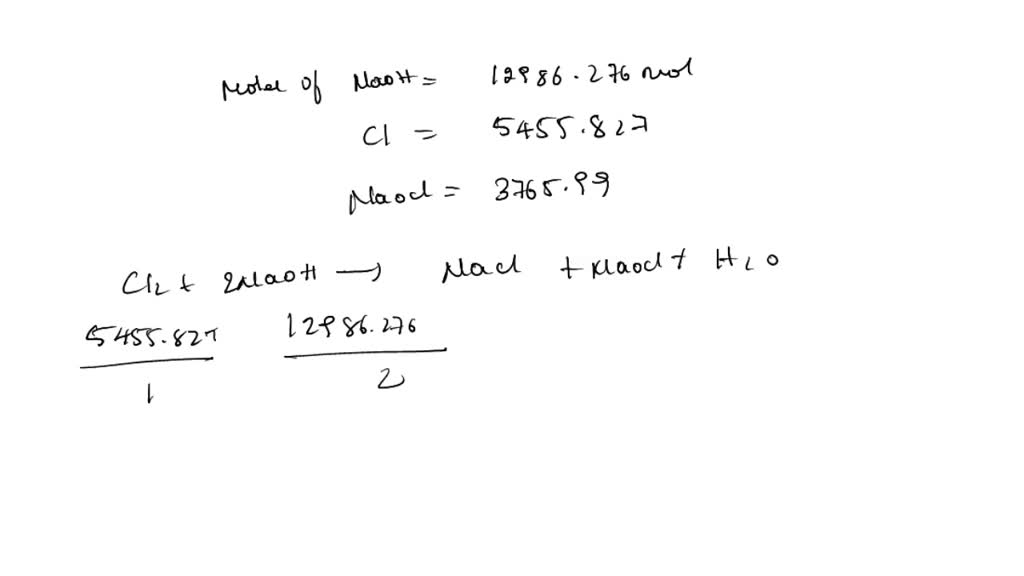 Moles of NaOH = 12986.276 mol
Cl = 5455.827
NaOCl = 3765.99
Cl2 + 2NaOH → NaCl + NaOCl + H2O
5455.827 12986.276
1 2